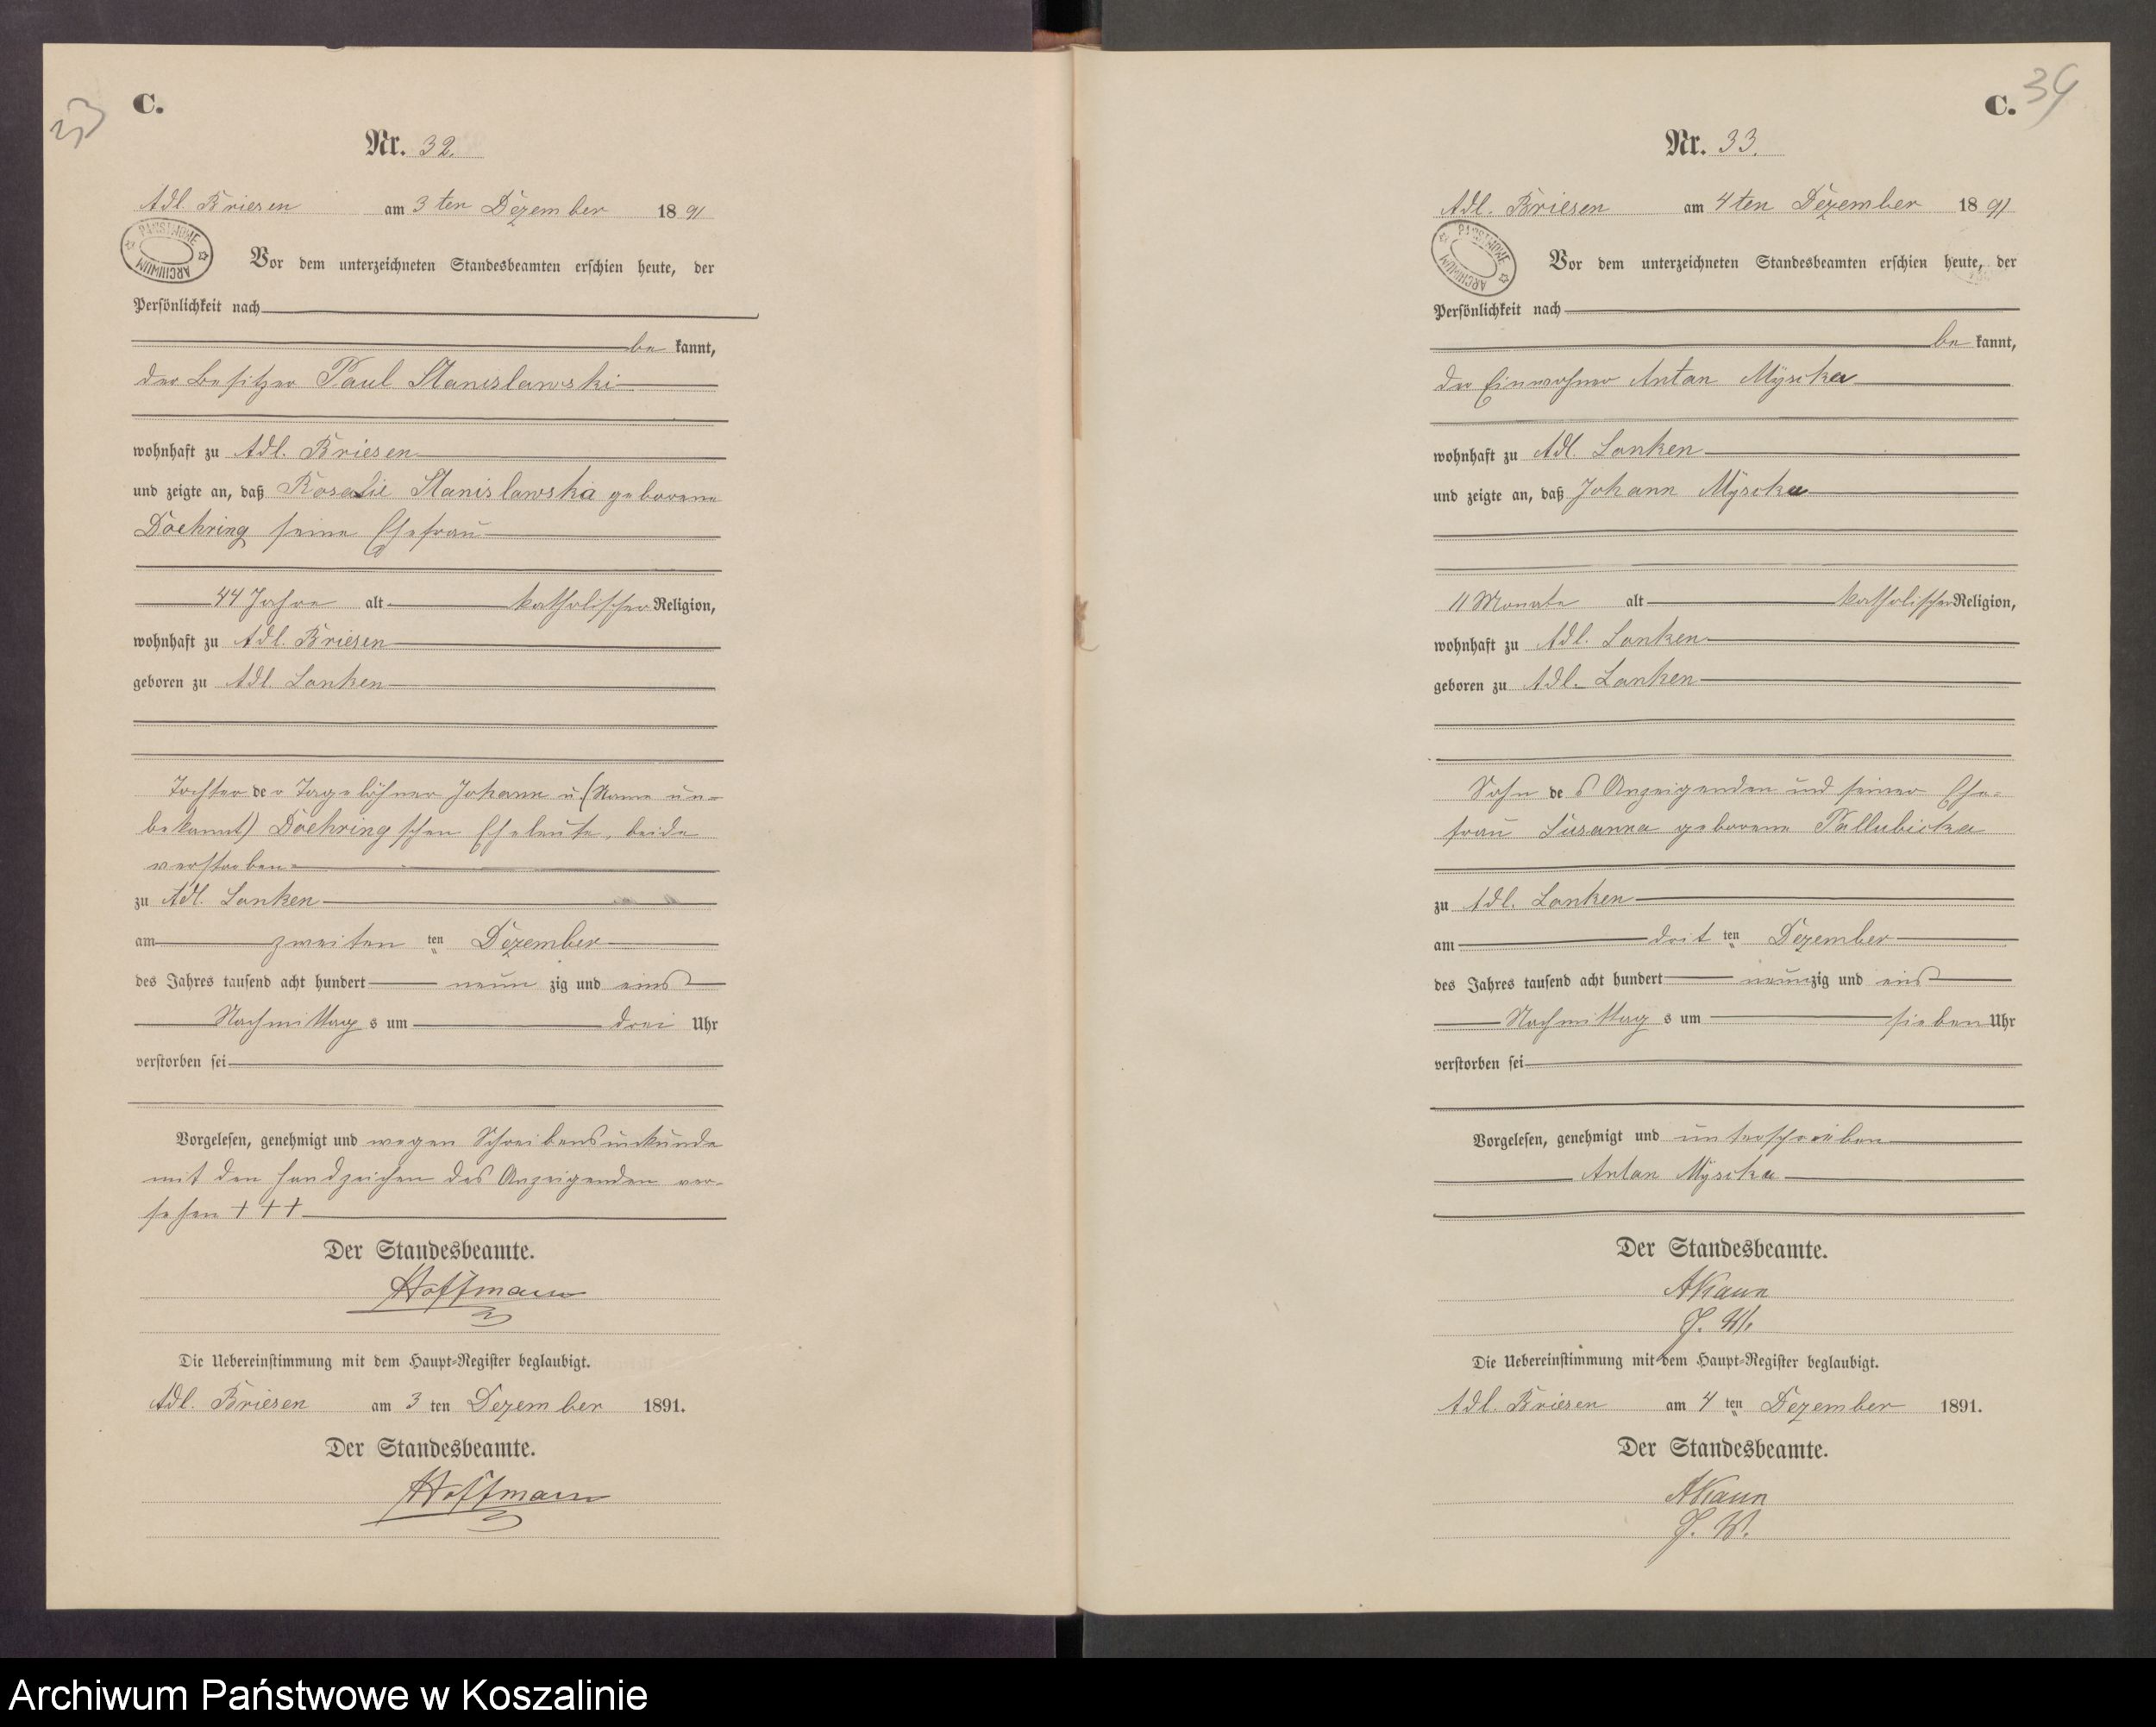 C.
33
Nr. 32.
Adl. Briesen am 3 ten Dezember 18 91
PAŃSTWOWE ARCHIWUM
Vor dem unterzeichneten Standesbeamten erschien heute, der
Persönlichkeit nach
be kannt,
der Besitzer Paul Stanislawski
wohnhaft zu Adl. Briesen
und zeigte an, daß Rosalie Stanislawska geborene
Doehring seine Ehefrau
44 Jahre alt katholischer Religion,
wohnhaft zu Adl. Briesen
geboren zu Adl. Lanken
Tochter der Tagelöhner Johann u (Name un-
bekannt) Doehring'schen Eheleute, beide
verstorben
zu Adl. Lanken
am zweiten ten Dezember
des Jahres tausend acht hundert neun zig und eins
Nachmittag s um drei Uhr
verstorben sei
Vorgelesen, genehmigt und wegen Schreibensunkunde
mit den Handzeichen des Anzeigenden ver-
sehen + + +
Der Standesbeamte.
Hoffmann
Die Uebereinstimmung mit dem Haupt-Register beglaubigt.
Adl. Briesen am 3 ten Dezember 1891.
Der Standesbeamte.
Hoffmann
C.
34
Nr. 33.
Adl. Briesen am 4 ten Dezember 18 91
PAŃSTWOWE ARCHIWUM
Vor dem unterzeichneten Standesbeamten erschien heute, der
Persönlichkeit nach
be kannt,
der Einwohner Anton Myscka
wohnhaft zu Adl. Lanken
und zeigte an, daß Johann Myscka
11 Monate alt katholischer Religion,
wohnhaft zu Adl. Lanken
geboren zu Adl. Lanken
Sohn des Anzeigenden und seiner Ehe-
frau Susanna geborene Pallubicka
zu Adl. Lanken
am drit ten Dezember
des Jahres tausend acht hundert neunzig und eins
Nachmittag s um sieben Uhr
verstorben sei
Vorgelesen, genehmigt und unterschrieben
Anton Myscka
Der Standesbeamte.
AKaun
J. V.
Die Uebereinstimmung mit dem Haupt-Register beglaubigt.
Adl. Briesen am 4 ten Dezember 1891.
Der Standesbeamte.
AKaun
J. V.
Archiwum Państwowe w Koszalinie